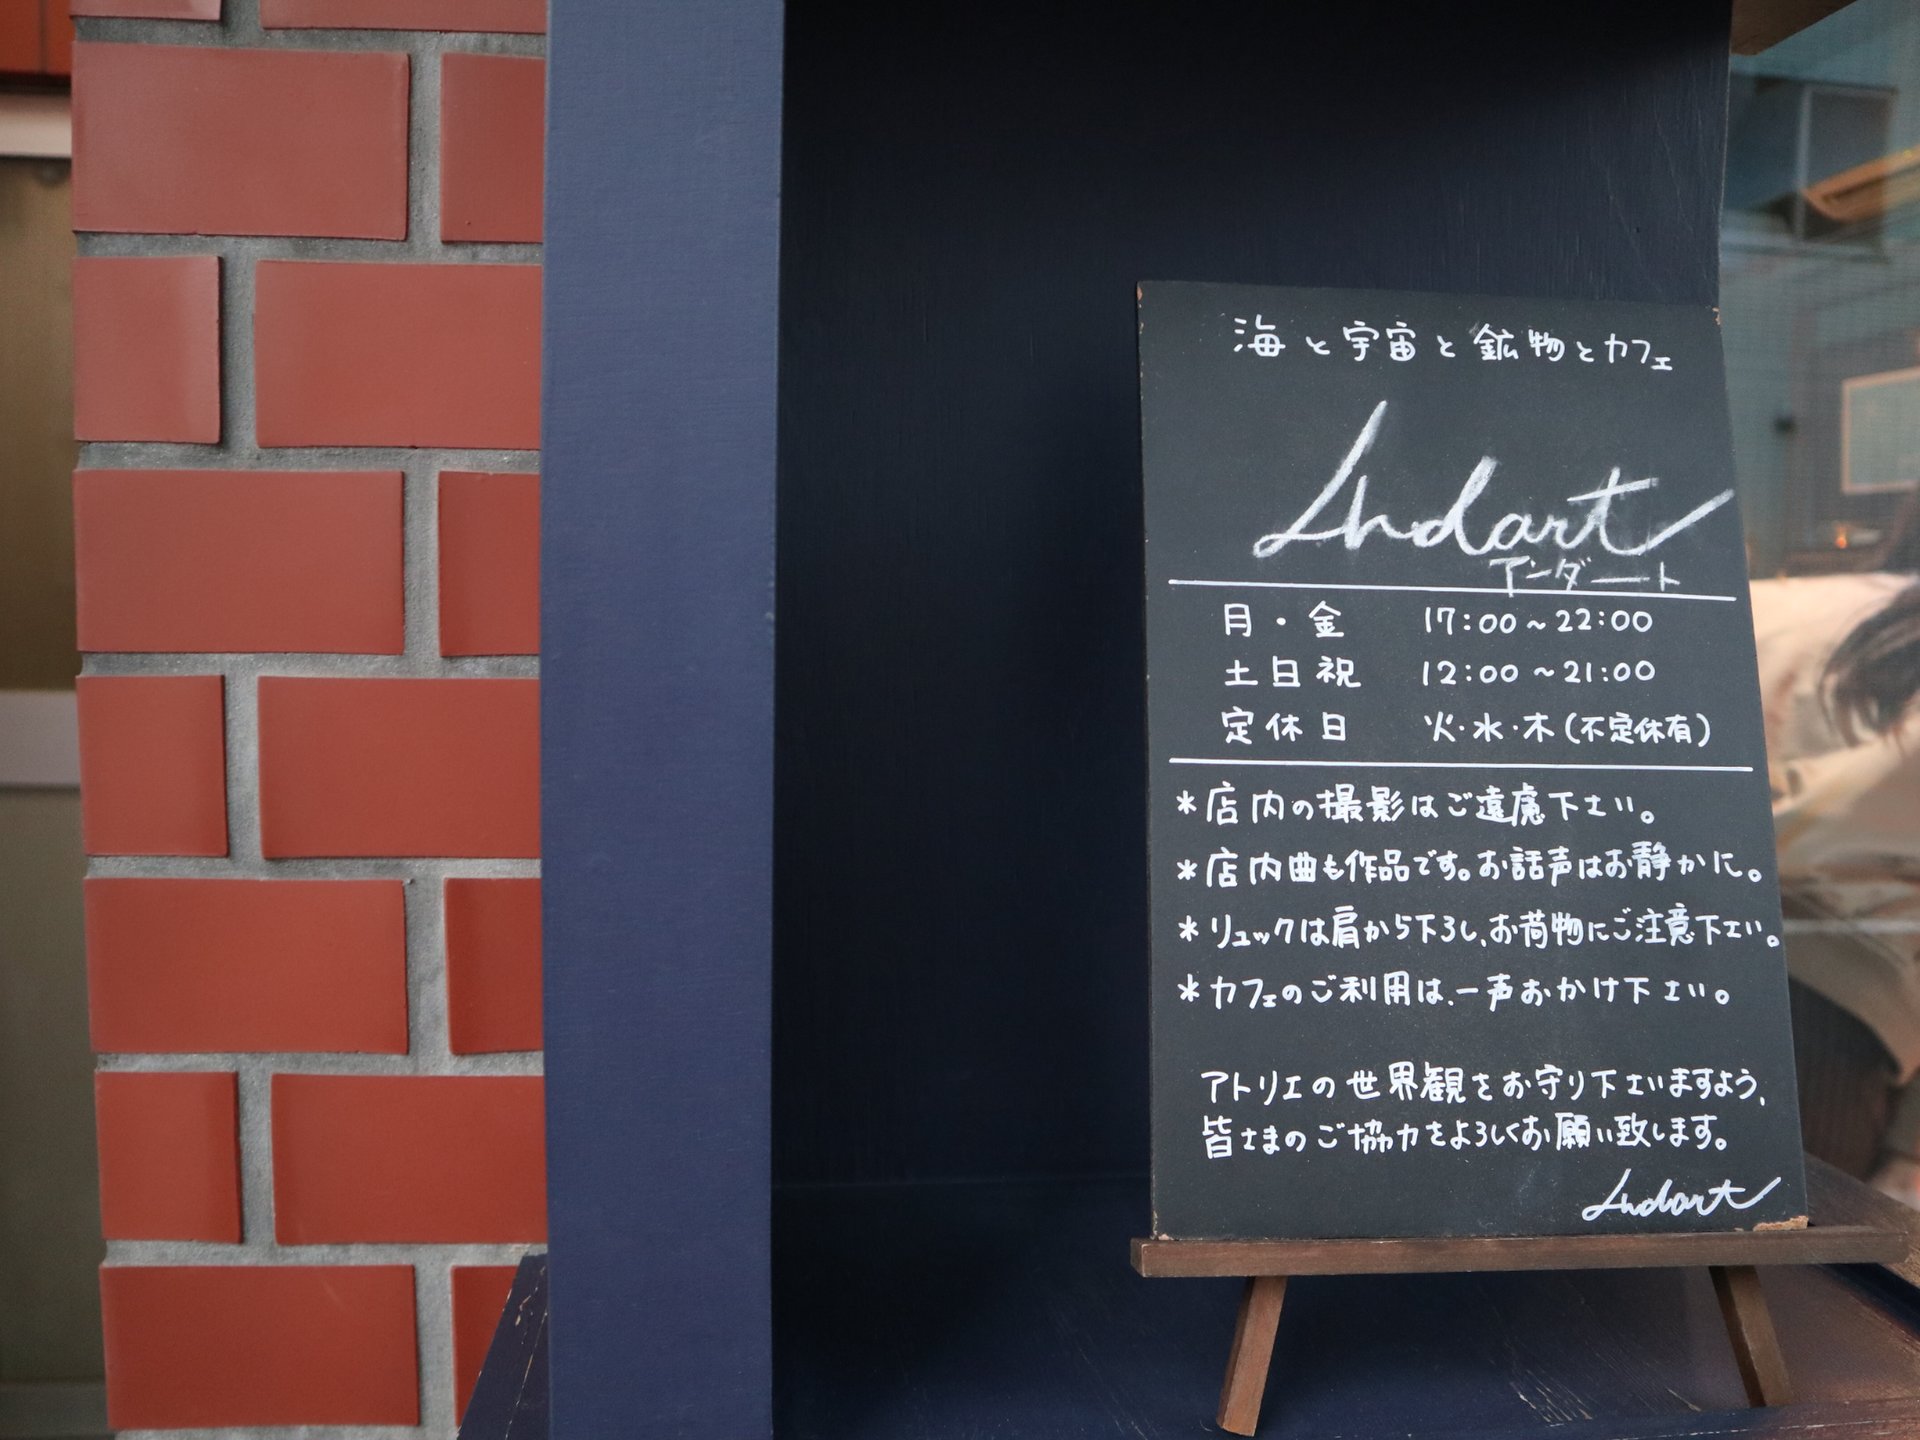 海と宇宙と鉱物とカフェ
Andart
アンダート
月・金 17:00~22:00
土日祝 12:00~21:00
定休日 火・水・木(不定休有)
*店内の撮影はご遠慮下さい。
*店内曲も作品です。お話声はお静かに。
*リュックは肩から下ろし、お荷物にご注意下さい。
*カフェのご利用は、一声おかけ下さい。
アトリエの世界観をお守り下さいますよう、
皆さまのご協力をよろしくお願い致します。
Andart